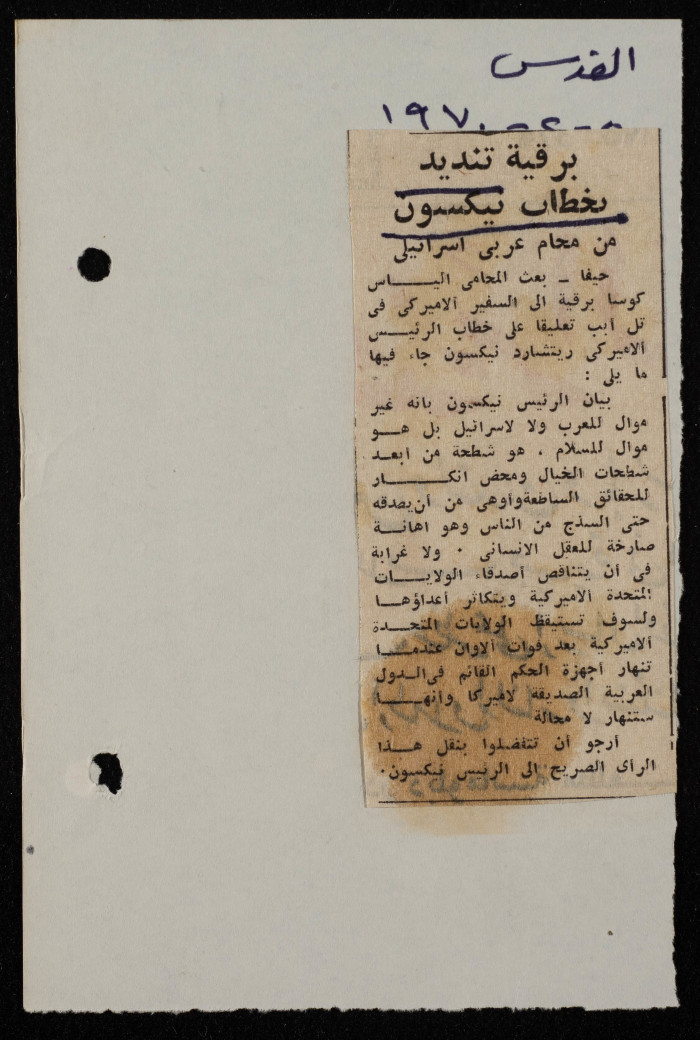 القدس
١٩٧٠ - ٢ - ٥
برقية تنديد
بخطاب نيكسون
من محام عربي اسرائيلي
حيفا ـ بعث المحامي اليــــاس
كوسا برقية الى السفير الاميركي في
تل أبيب تعليقا على خطاب الرئيــس
الاميركي ريتشارد نيكسون جاء فيها
ما يلي :
بيان الرئيس نيكسون بانه غير
موال للعرب ولا لاسرائيل بل هــو
موال للسلام ، هو شطحة من أبعــد
شطحات الخيال ومحض انكــــار
للحقائق الساطعة وأوهى من أن يصدقه
حتى السذج من الناس وهو اهانــة
صارخة للعقل الانساني ٠ ولا غرابة
في أن يتناقص أصدقاء الولايــــات
المتحدة الاميركية ويتكاثر أعداؤهــا
ولسوف تستيقظ الولايات المتحــدة
الاميركية بعد فوات الاوان عندمــا
تنهار أجهزة الحكم القائم في الــدول
العربية الصديقة لاميركا وأنهــا
ستنهار لا محالة
أرجو أن تتفضلوا بنقل هــذا
الرأي الصريح الى الرئيس نيكسون٠